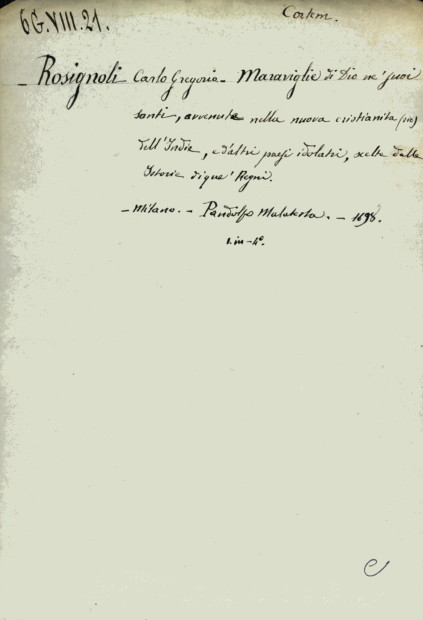 6G.VIII.21.
Cortem.
- Rosignoli Carlo Gregorio - Maraviglie di Dio ne' suoi
santi, avvenute nella nuova cristianita (sic)
dell'Indie, e d'altri paesi idolatri, scelte dalle
Istorie di que' Regni.
- Milano. - Pandolfo Malatesta. - 1698.
1. in-4°.
e